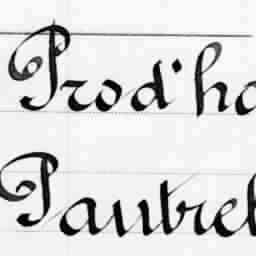 Prod'ho
Pautrel